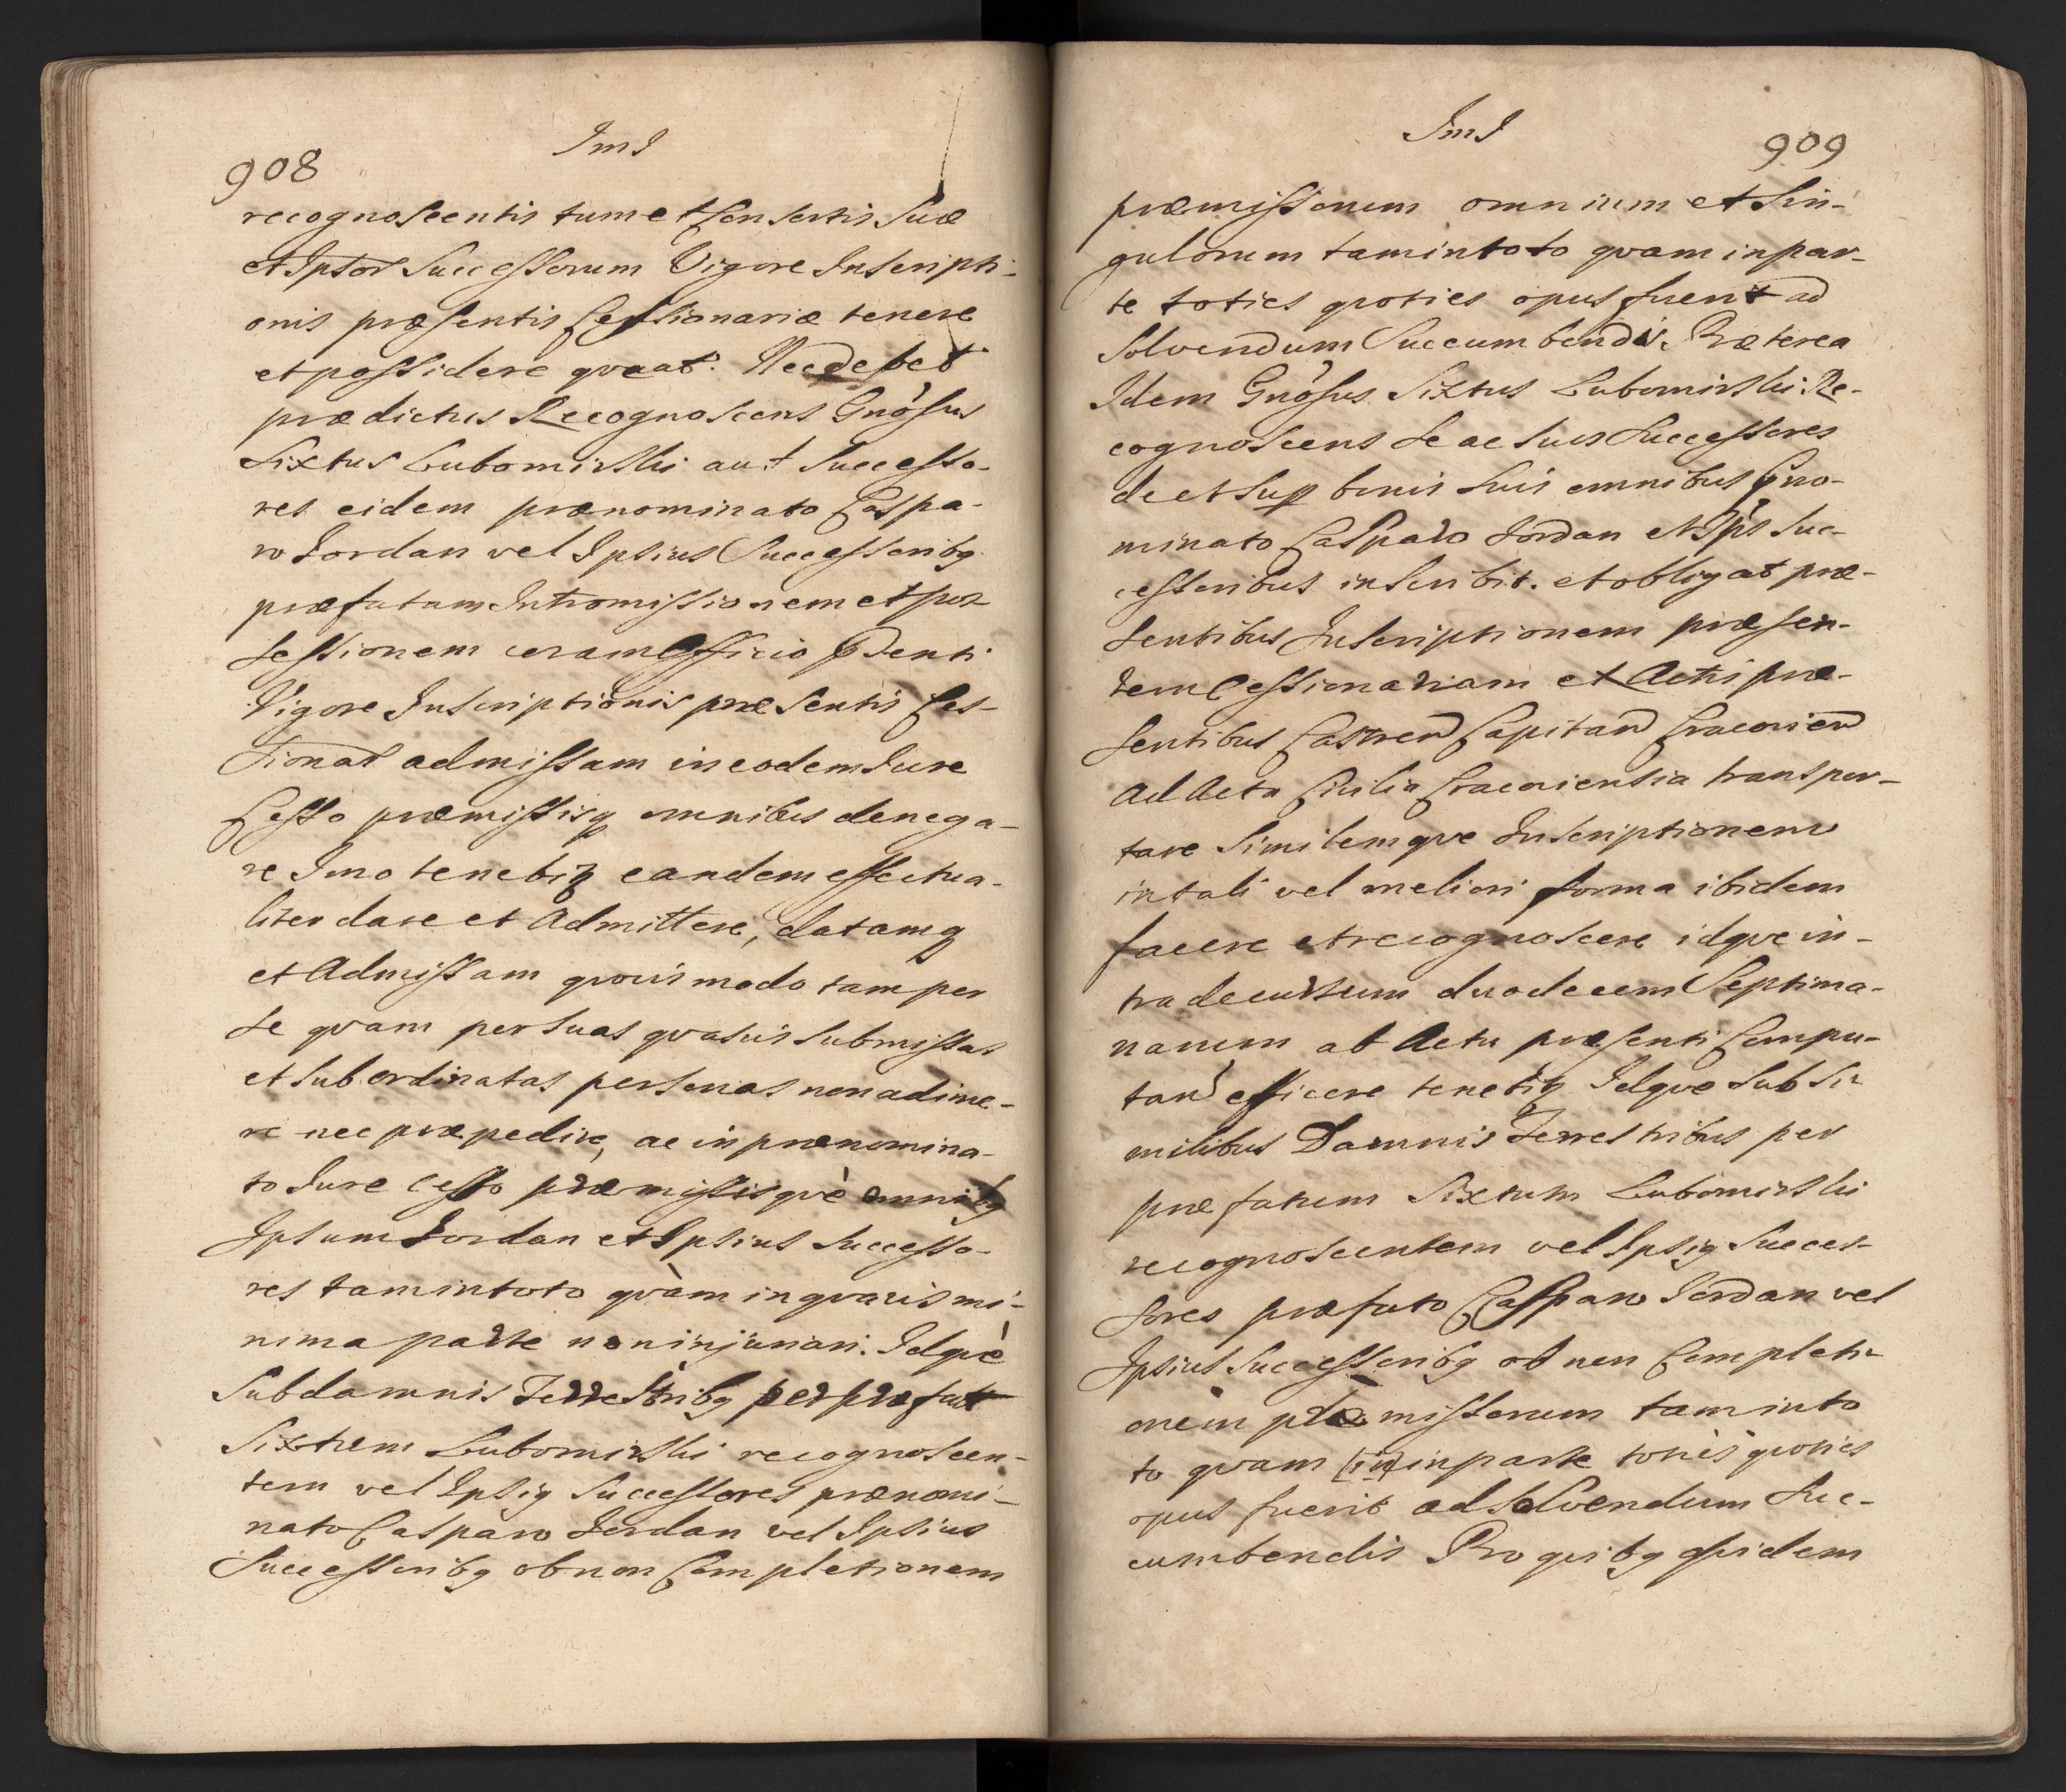 908
ImJ
recognoscentis tum et Consortis Suæ
et Ipsor Successorum Vigore Inscripti-
onis præsentis Cessionariæ tenere
et possidere qveat. Nec debet
prædictus Recognoscens Gnosus
Sixtus Lubomirski aut Successo-
res eidem prænominato Caspa-
ro Jordan vel Ipsius Successoribq
præfatam Intromissionem et pos
sessionem coram Officio pdenti
Vigore Inscriptionis præsentis Ces-
sionar admissam in eodem Jure
Cesso præmissisq omnibus denega-
re Imo tenebiq eandem effectua-
liter dare et Admittere, datamq
et Admissam qvovis modo tam per
se qvam per suas qvasvis submissas
et subordinatas personas non adime-
re nec præpedire, ac in prænomina-
to Jure Cesso præmissisqvè omnibq
Ipsum Jordan et Ipsius Successo-
res tam in toto qvàm in qvavis mi-
nima parte non injuriari. Idqvè
Sub damnis Terrestribq per præfat
Sixtum Lubomirski recognoscen-
tem vel Ipsiq Successores prænomi-
nato Casparo Jordan vel Ipsius
Successoribq ob non Completionem
ImJ
909
præmissorum omnium et Sin-
gulorum tam in toto qvam in par-
te toties qvoties opus fuerit ad
Solvendum Succumbendis. Præterea
Idem Gnosus Sixtus Lubomirski Re-
cognoscens se ac suos Successores
de et sup bonis suis omnibus pno-
minato Casparo Jordan et Ips Suc-
cessoribus inscribit. et obligat præ-
sentibus Inscriptionem præsen-
tem Cessionariam ex Actis præ-
sentibus Castren Capitan Cracovien
Ad Acta Civilia Cracoviensia transpor-
tare Similemqve Inscriptionem
in tali vel meliori forma ibidem
facere et recognoscere idqve in-
tra decursum duodecem Septima-
narum ab Actu præsenti Compu-
tan efficere tenebiq Idqve Sub Si
milibus Damnis Terrestribus per
præfatum Sixtum Lubomirski
recognoscentem vel Ipsiq Succes-
sores præfato Casparo Jordan vel
Ipsius Successoribq ob non Completi-
onem præmissorum tam in to
to qvam [in] in parte toties qvoties
opus fuerit ad Solvendum Suc-
cumbendis Pro qvibq qvidem